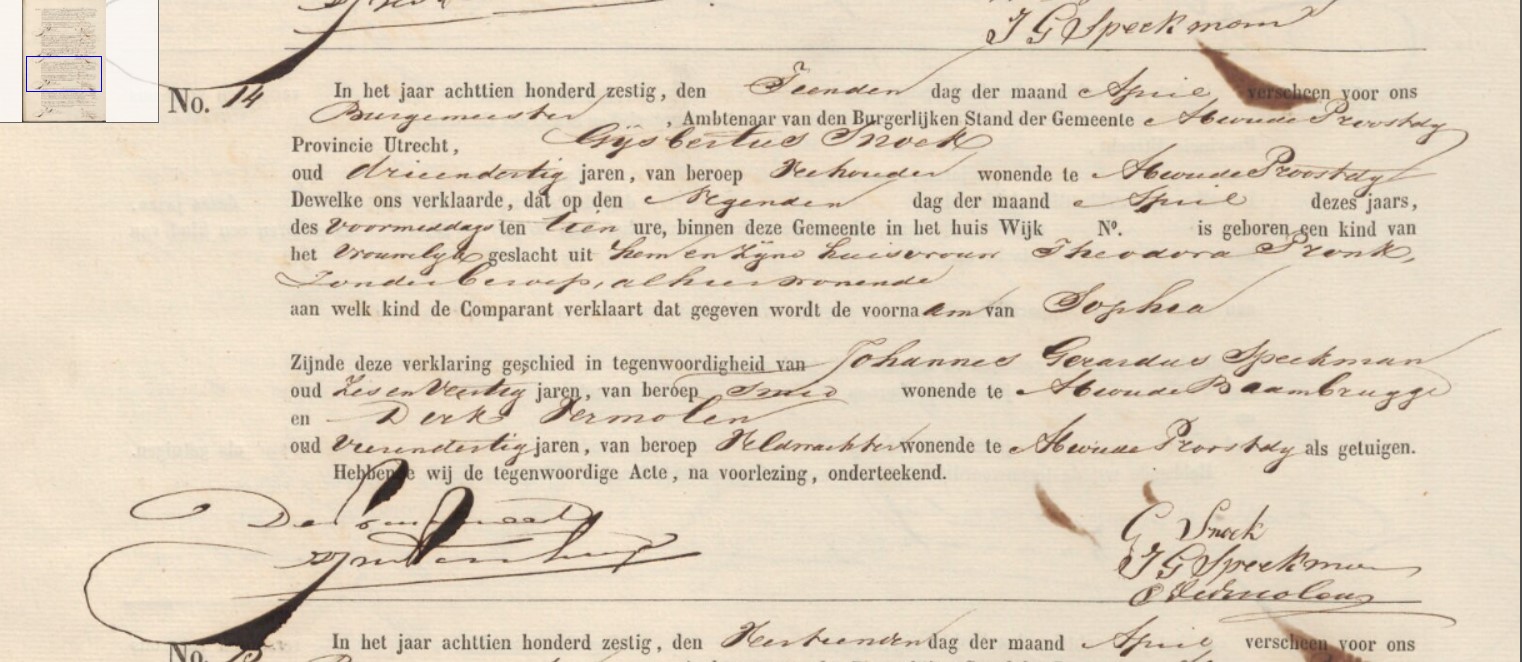 J G Speekman
No. 14 In het jaar achttien honderd zestig, den Tienden dag der maand April verscheen voor ons
Burgemeester, Ambtenaar van den Burgerlijken Stand der Gemeente Abcoude Proostdy
Provincie Utrecht, Gijsbertus Snoek
oud drieendertig jaren, van beroep Veehouder wonende te Abcoude Proostdy
Dewelke ons verklaarde, dat op den Negenden dag der maand April dezes jaars,
des voormiddags ten tien ure, binnen deze Gemeente in het huis Wijk No. is geboren een kind van
het vrouwelyk geslacht uit hem en zyne huisvrouw Theodora Pronk,
zonder beroep, alhier wonende
aan welk kind de Comparant verklaart dat gegeven wordt de voornaam van Sophia
Zijnde deze verklaring geschied in tegenwoordigheid van Johannes Gerardus Speekman
oud Zes en Veertig jaren, van beroep Smid wonende te Abcoude Baambrugge
en Derk Vermolen
oud vierendertig jaren, van beroep Veldwachter wonende te Abcoude Proostdy als getuigen.
Hebbende wij de tegenwoordige Acte, na voorlezing, onderteekend.
De
G Snoek
J G Speekman
D Vermolen
No. In het jaar achttien honderd zestig, den dag der maand April verscheen voor ons